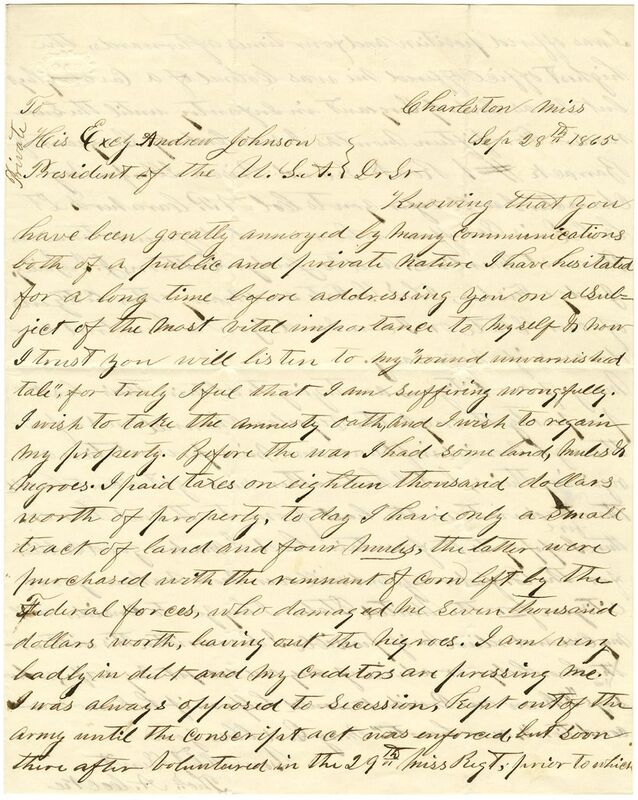 Charleston Miss
To
His Excy Andrew Johnson } Sep 28th 1865
President of the U.S.A. } Dr Sr
Private
Knowing that you
have been greatly annoyed by many communications
both of a public and private nature I have hesitated
for a long time before addressing you on a sub=
ject of the most vital importance to myself & now
I trust you will listen to my "round unvarnished
tale", for truly I feel that I am suffering wrongfully.
I wish to take the amnesty oath, and I wish to regain
my property. Before the war I had some land, mules &
negroes. I paid taxes on eighteen thousand dollars
worth of property, to day I have only a small
tract of land and four mules, the latter were
purchased with the remnant of corn left by the
Federal forces, who damaged me seven thousand
dollars worth, leaving out the negroes. I am very
badly in debt and my creditors are pressing me.
I was always opposed to secession, kept out of the
army until the conscript act was enforced, but soon
there after volunteered in the 29th Miss Regt, prior to which